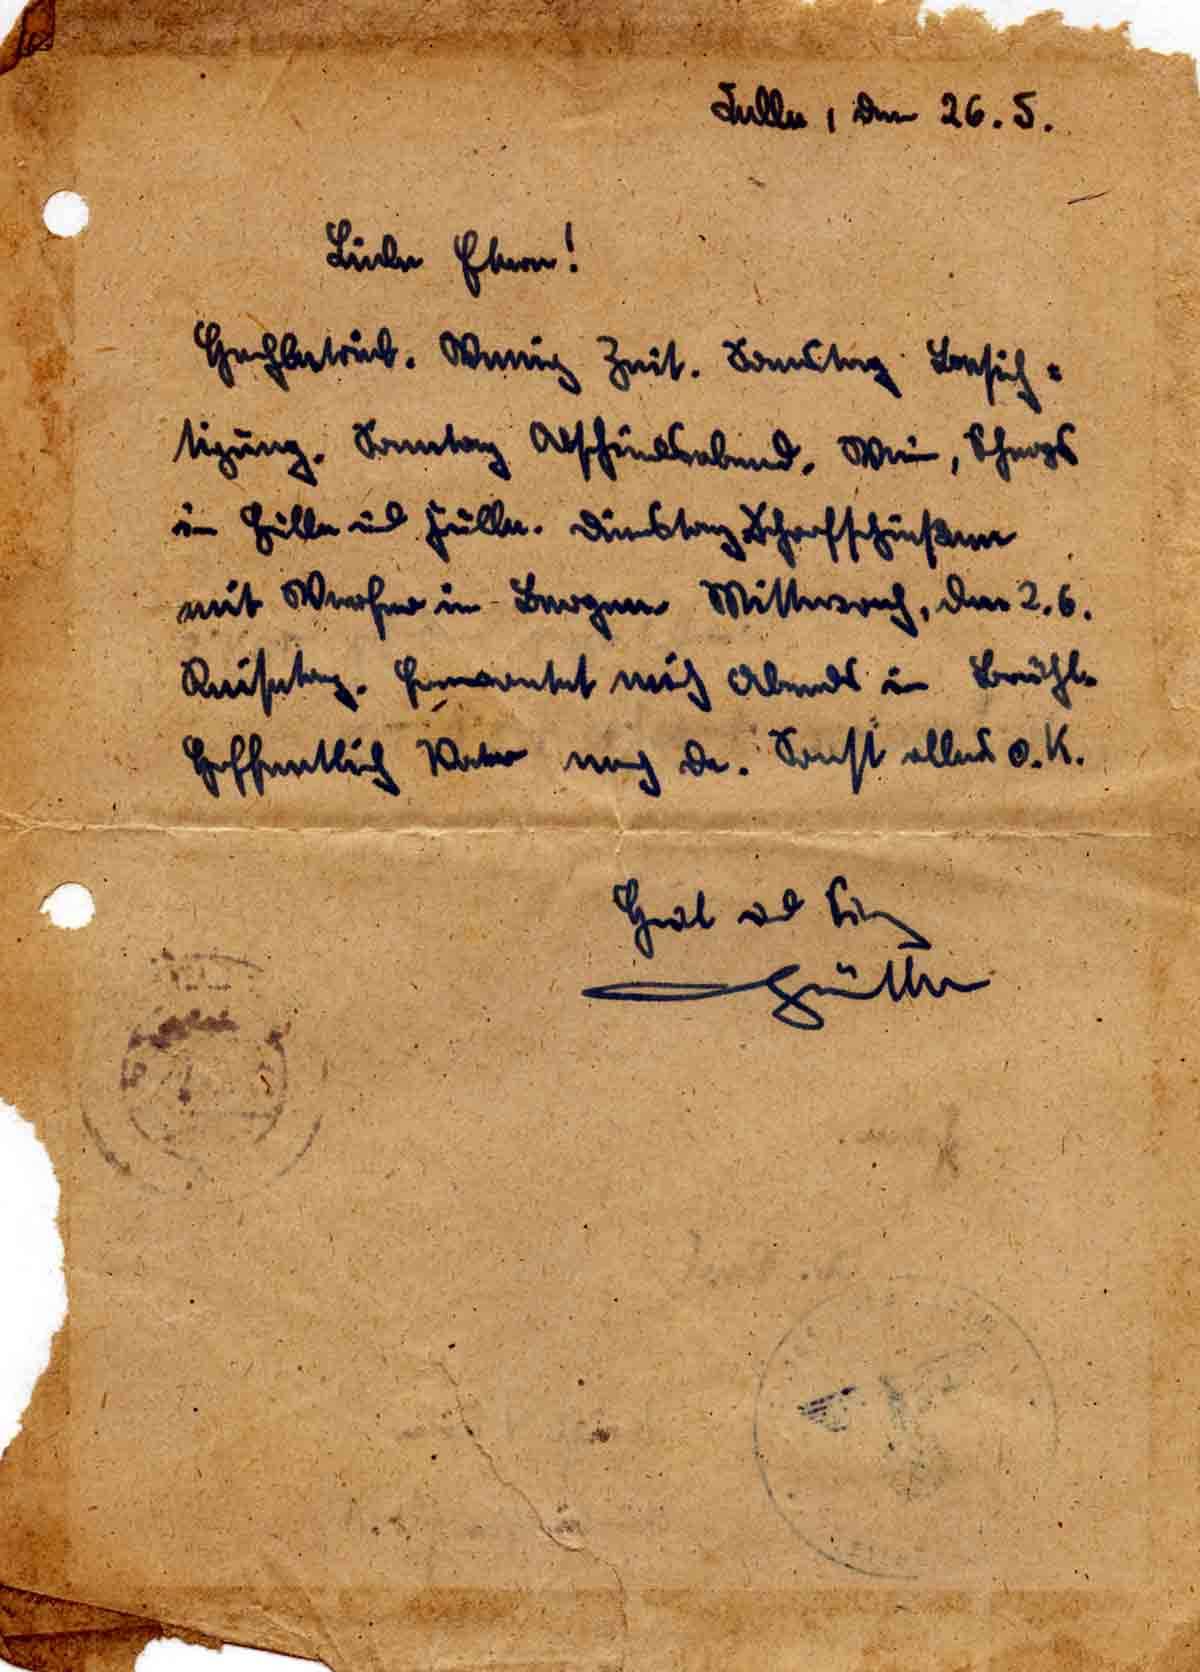 Celle, den 26.5.
Liebe Eltern!
Hochbetrieb. Wenig Zeit. Samstag Besich=
tigung. Sonntag Abschiedsabend. Wein, Schnaps
in Hülle und Fülle. Dienstag Scharfschießen
mit Werfer in Bergen. Mittwoch, den 2.6.
Reisetag. Erwartet mich Abends in Brühl.
Hoffentlich Vater noch da. Sonst alles o.K.
Gruß und
Günther